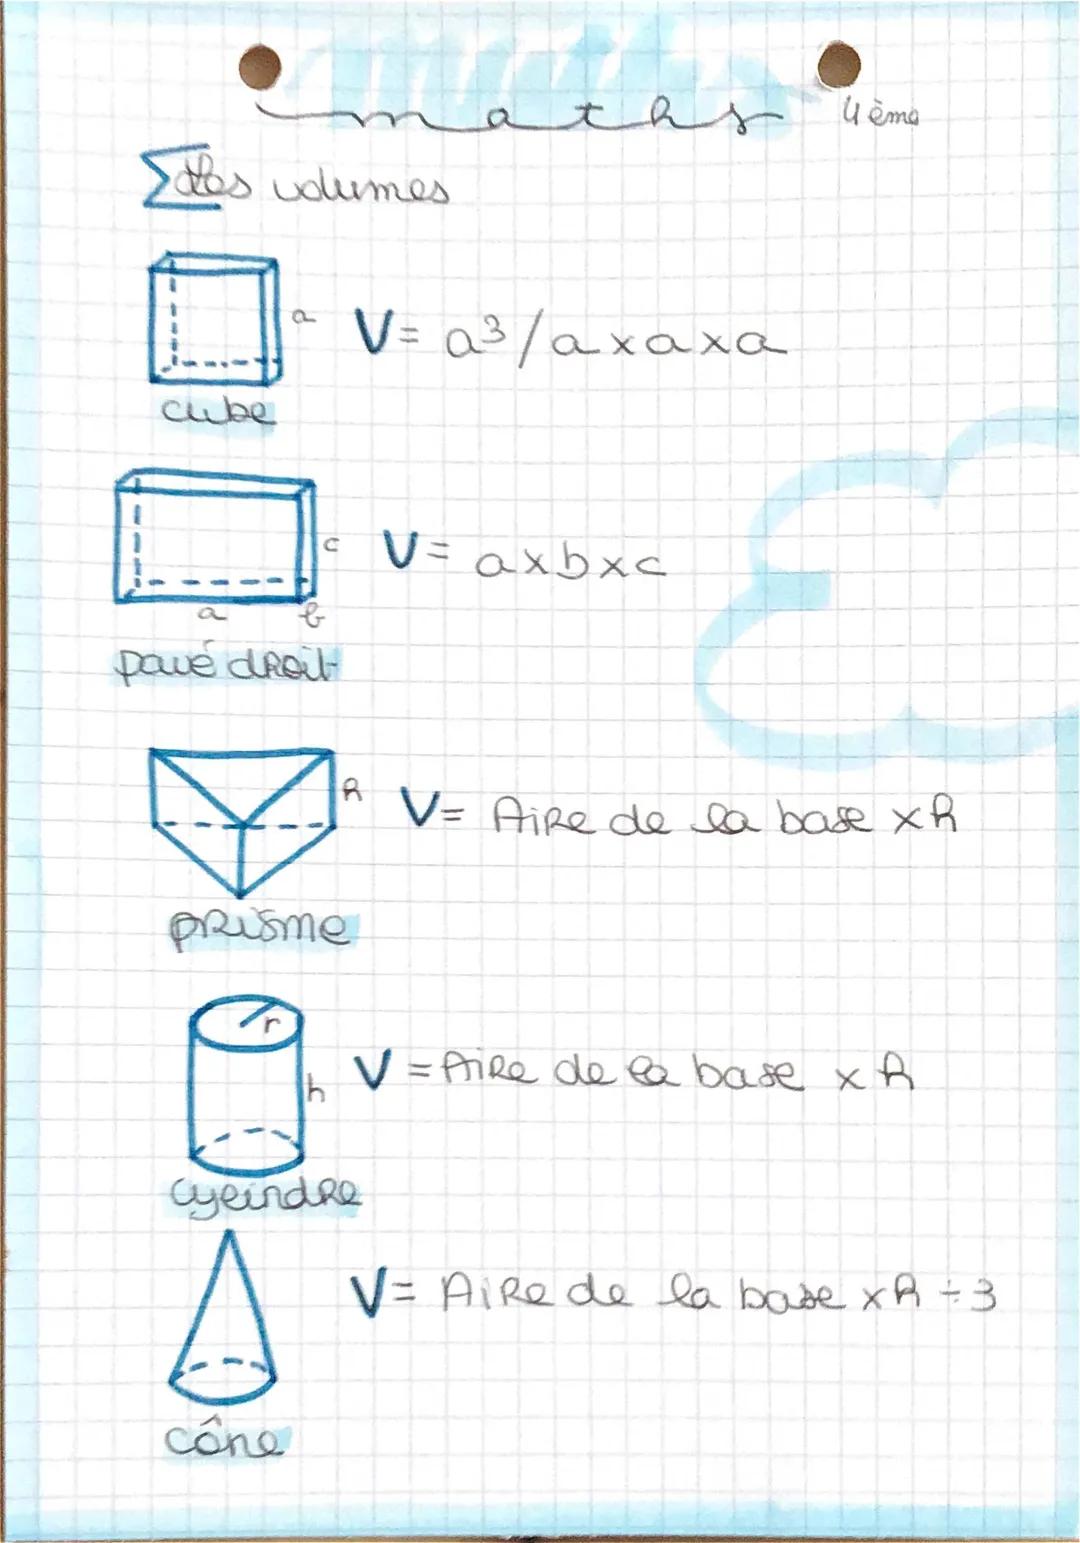 maths
4ème
les volumes
a
V= a³/axaxa
cube
c
V= axbxc
a
b
pavé droit
h
V= Aire de la base xh
prisme
r
h
V = Aire de la base x h
cylindre
V= Aire de la base xh ÷3
cône